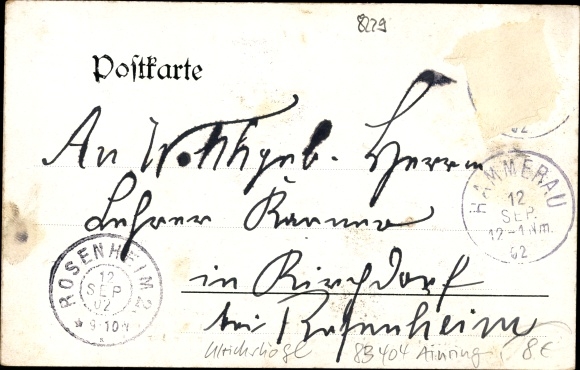 8229
Postkarte
An Wohlgeb. Herrn
Lehrer Karner
in Kirchdorf
bei Rosenheim
HAMMERAU
12
SEP.
12-1 Nm.
02
02
ROSENHEIM 2.
12
SEP
02
9-10
Ulrichshögl 83404 Ainring 8€